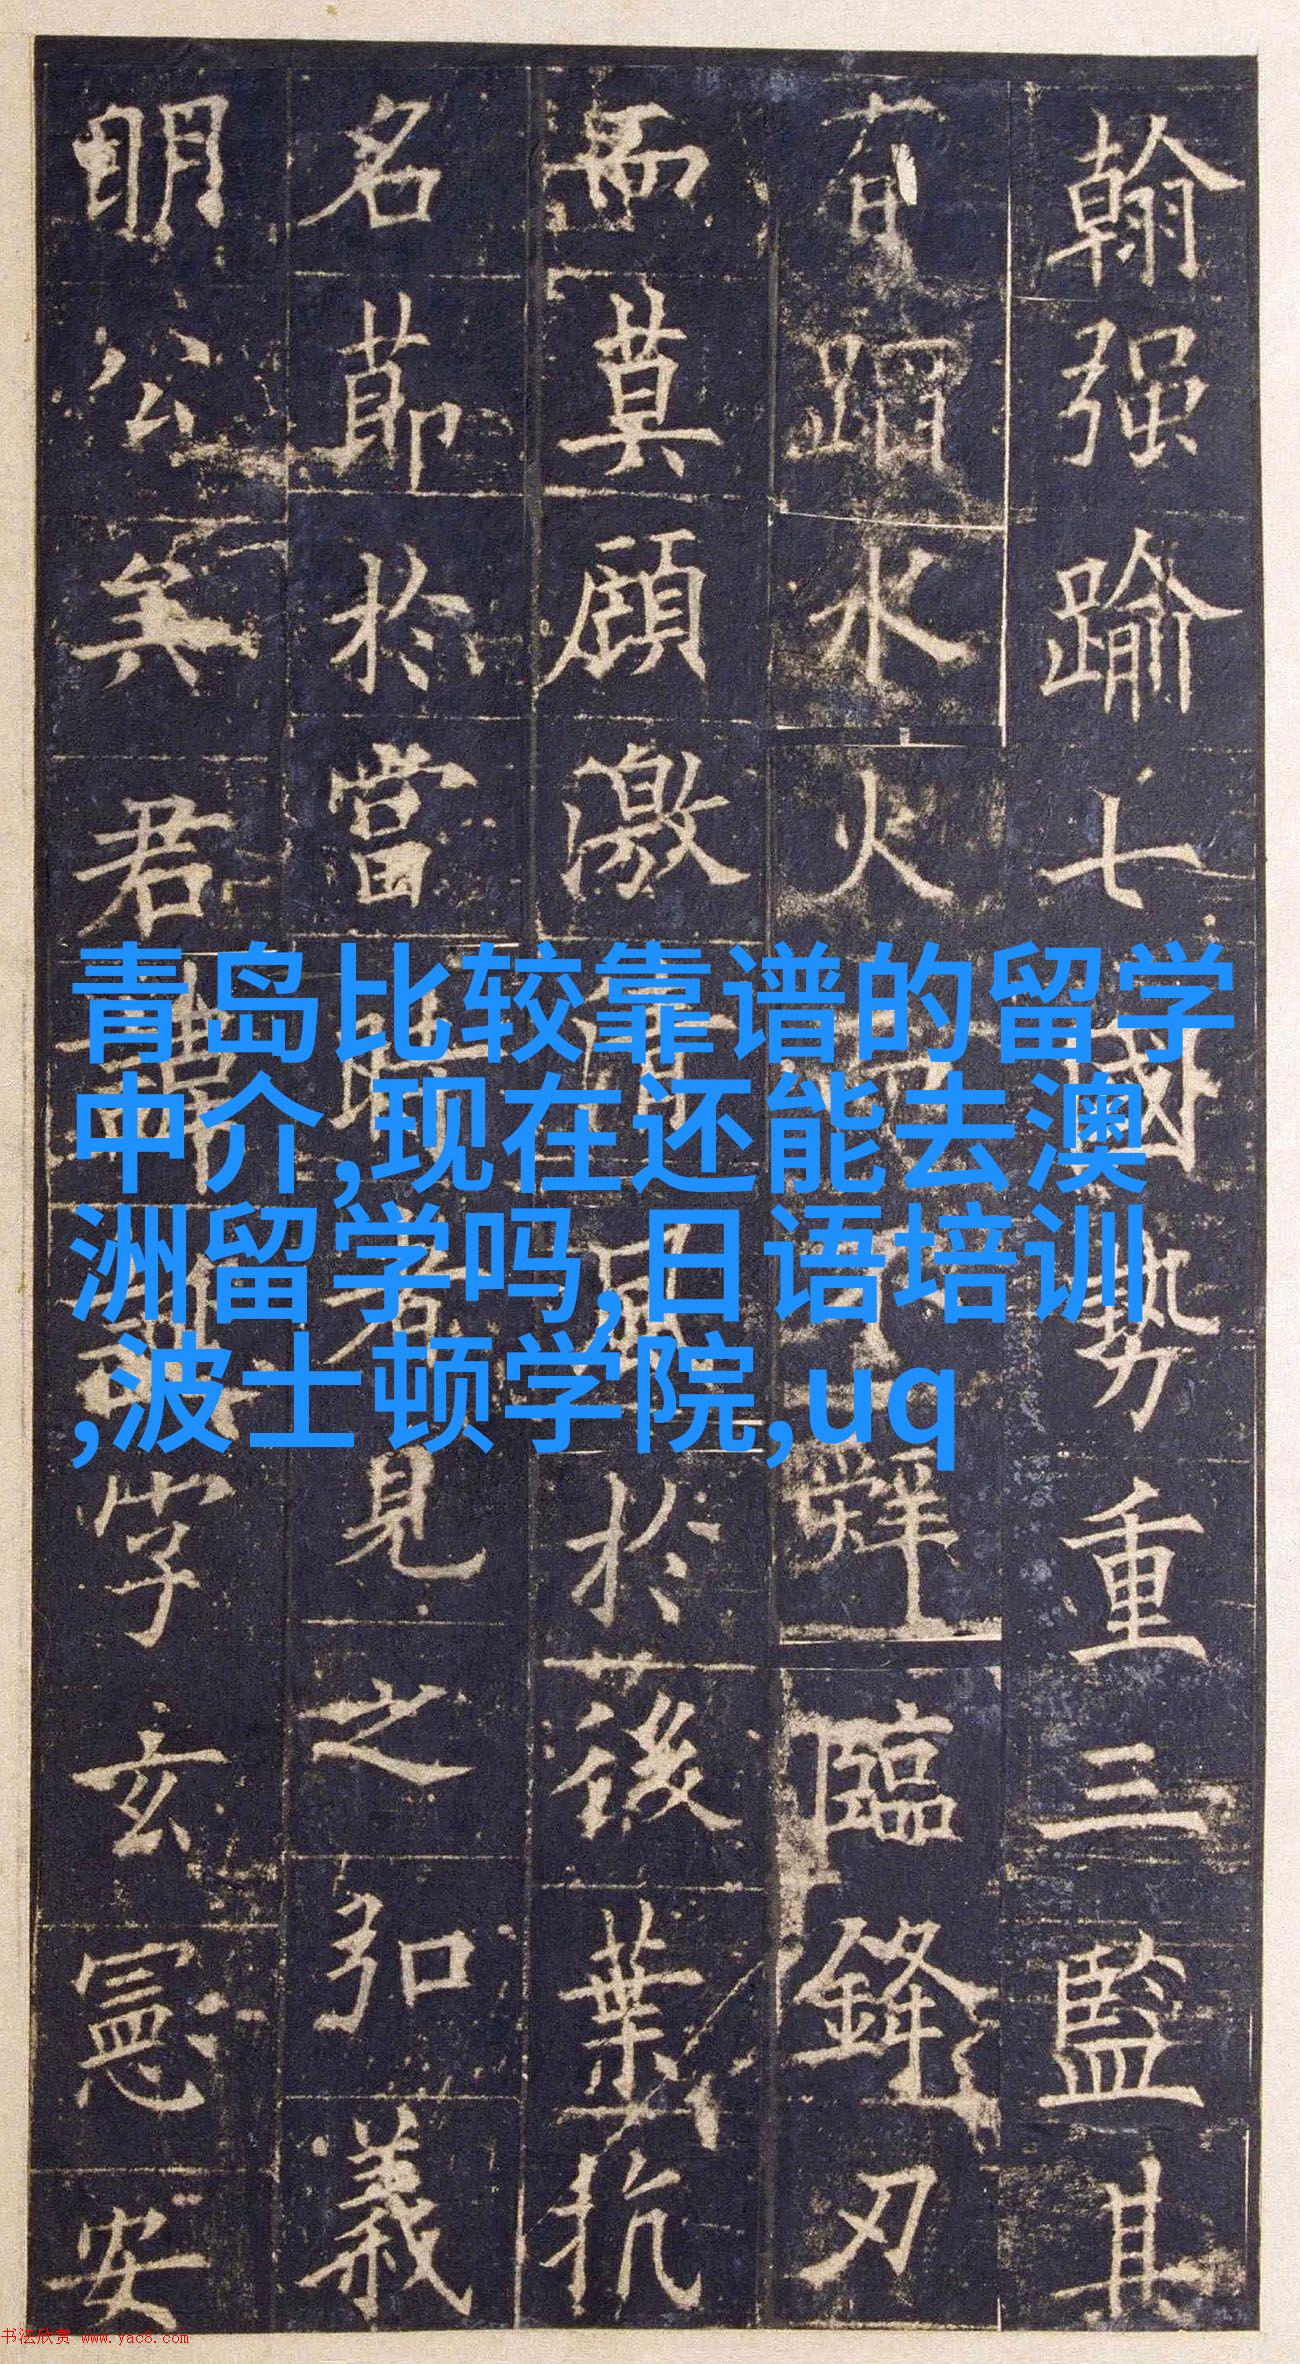 翰强踰七國勢重三監其
有蹈水火而不辭臨鋒刃
而莫顧激清風於後葉抗
名節於當時者見之弘義
明公矣君諱誕字玄憲安
青岛比较靠谱的留学
中介,现在还能去澳
洲留学吗,日语培训
,波士顿学院,uq
书法欣赏 www.yac8.com